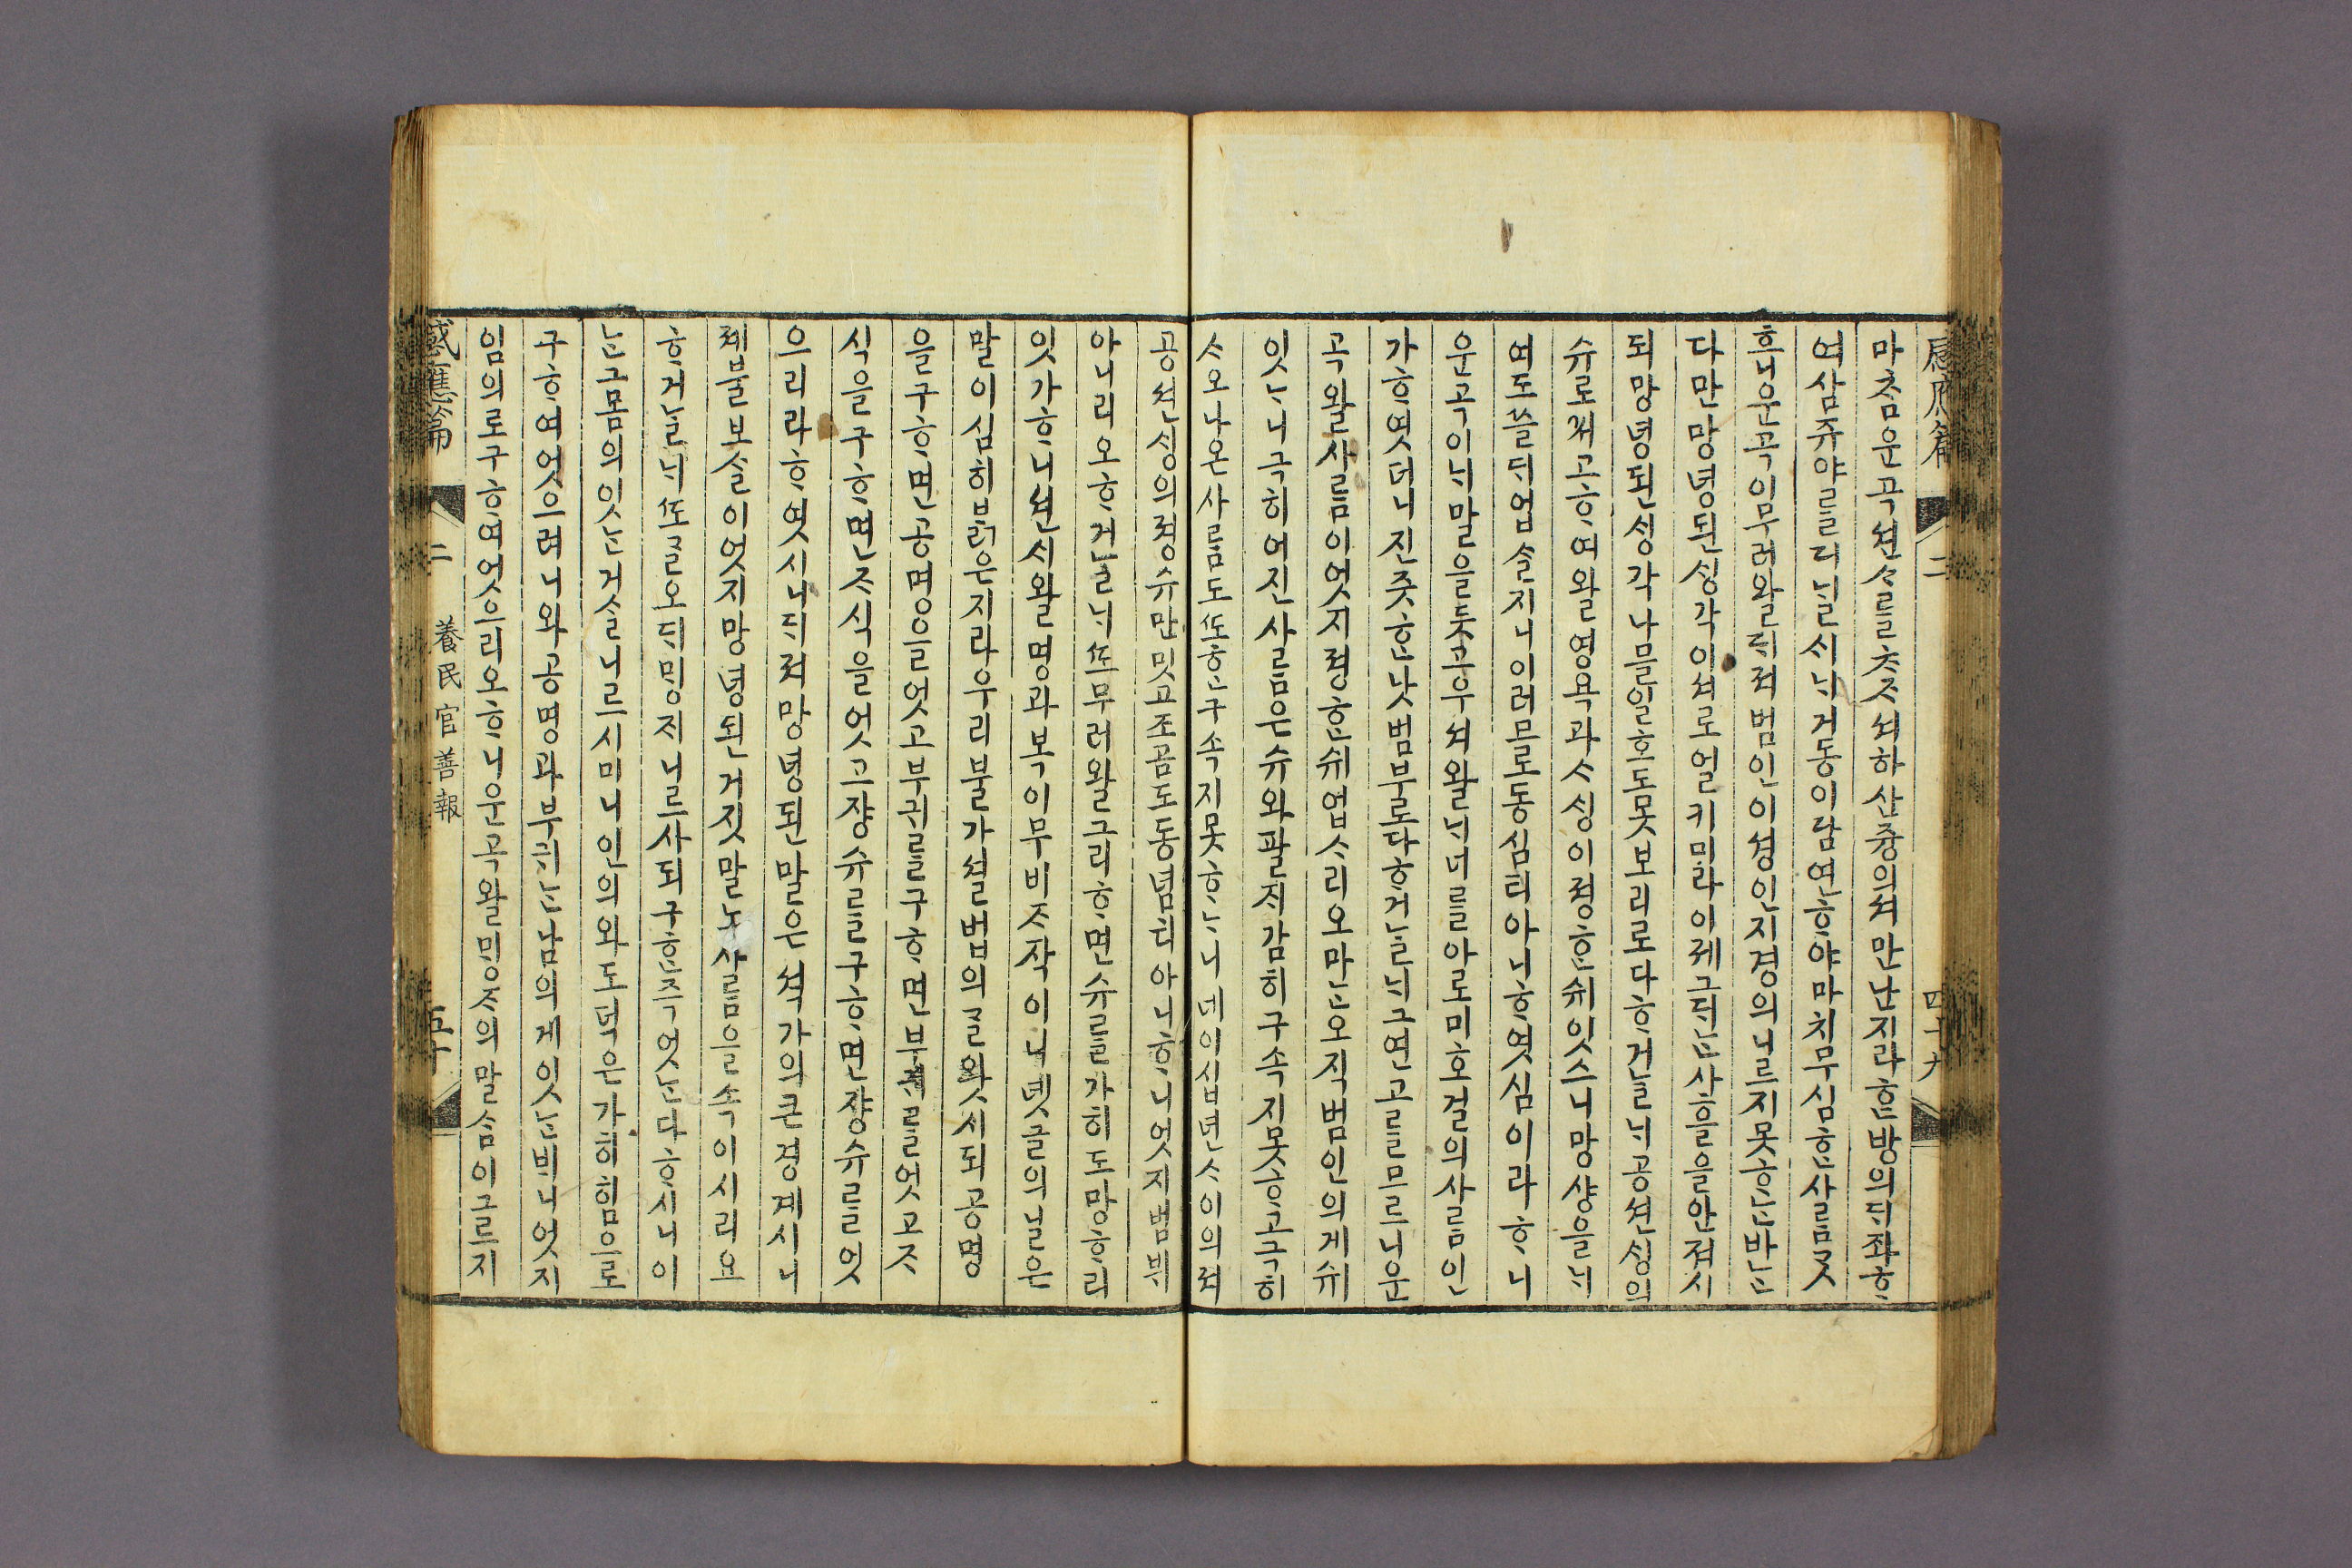 感應篇 二 四十九
마ᄎᆞᆷ운곡션ᄉᆞᄅᆞᆯᄎᆞᄌᆞ셔하산즁의셔만난지라ᄒᆞᆫ방의ᄃᆡ좌ᄒᆞ
여삼쥬야ᄅᆞᆯ디ᄂᆡᆯᄉᆡᄂᆡ거동이담연ᄒᆞ야마치무심ᄒᆞᆫ사ᄅᆞᆷᄀᆞᆺ
흔디운곡이무러왈ᄃᆡ져범인이셩인지경의니르지못ᄒᆞᄂᆞᆫ바ᄂᆞᆫ
다만망녕된ᄉᆡᆼ각이셔로얼키미라이졔그ᄃᆡᄂᆞᆫ사흘을안져시
되망녕된ᄉᆡᆼ각나믈일호도못보리로다ᄒᆞ거ᄂᆞᆯᄂᆡ공션ᄉᆡᆼ의
슈로ᄡᅥ고ᄒᆞ여왈영욕과ᄉᆞᄉᆡᆼ이졍ᄒᆞᆫ쉬잇스니망샹을ᄂᆡ
여도쓸ᄃᆡ업슬지니이러므로동심티아니ᄒᆞ엿심이라ᄒᆞ니
운곡이ᄂᆡ말을듯고우셔왈ᄂᆡ너ᄅᆞᆯ아로미호걸의사ᄅᆞᆷ인
가ᄒᆞ엿더니진즛ᄒᆞᆫ낫범부로다ᄒᆞ거ᄂᆞᆯᄂᆡ그연고ᄅᆞᆯ므르니운
곡왈사ᄅᆞᆷ이엇지졍ᄒᆞᆫ쉬업ᄉᆞ리오만은오직범인의게쉬
잇ᄂᆞ니극히어진사ᄅᆞᆷ은슈와팔ᄌᆡ감히구속지못ᄒᆞ고극히
ᄉᆞ오나온사ᄅᆞᆷ도ᄯᅩᄒᆞᆫ구속지못ᄒᆞᄂᆞ니네이십년ᄉᆞ이의져
공션ᄉᆡᆼ의졍슈만밋고조곰도동념티아니ᄒᆞ니엇지범뷔
아니리오ᄒᆞ거ᄂᆞᆯᄂᆡᄯᅩ무러왈그리ᄒᆞ면슈ᄅᆞᆯ가히도망ᄒᆞ리
잇가ᄒᆞ니션ᄉᆡ왈명과복이무비ᄌᆞ작이니녯글의닐은
말이심히ᄇᆞᆰ은지라우리불가셔ᄃᆞᆯ법의ᄀᆞᆯ왓시되공명
을구ᄒᆞ면공명을엇고부귀ᄅᆞᆯ구ᄒᆞ면부귀ᄅᆞᆯ엇고ᄌᆞ
식을구ᄒᆞ면ᄌᆞ식을엇고쟝슈ᄅᆞᆯ구ᄒᆞ면쟝슈ᄅᆞᆯ엇
으리라ᄒᆞ엿시니ᄃᆡ져망녕된말은셕가의큰경계시니
졔불보살이엇지망녕된거짓말노사ᄅᆞᆷ을속이시리오
ᄒᆞ거ᄂᆞᆯᄂᆡᄯᅩᄀᆞᆯ오ᄃᆡᄆᆡᆼᄌᆡ니르사되구ᄒᆞᆫ즉엇ᄂᆞᆫ다ᄒᆞ시니이
ᄂᆞᆫ그몸의잇ᄂᆞᆫ거ᄉᆞᆯ니르시미니인의와도덕은가히힘으로
구ᄒᆞ여엇으려니와공명과부귀ᄂᆞᆫᄂᆞᆷ의게잇ᄂᆞᆫᄇᆡ니엇지
임의로구ᄒᆞ여엇으리오ᄒᆞ니운곡왈ᄆᆡᆼᄌᆞ의말ᄉᆞᆷ이그르지
感應篇 二 養民官善報 五十